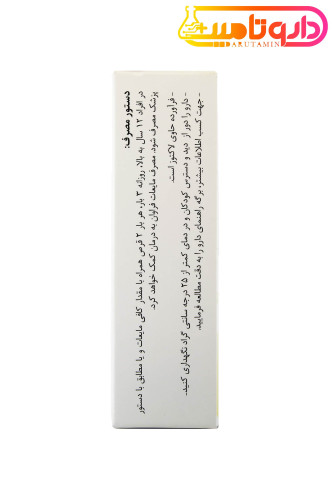 داروتامین
DARUTAMIN
دستور مصرف:
در افراد ۱۲ سال به بالا، روزانه ۳ بار، هر بار ۲ قرص همراه با مقدار کافی مایعات و یا مطابق با دستور
پزشک مصرف شود. مصرف مایعات فراوان به درمان کمک خواهد کرد.
- فرآورده حاوی لاکتوز است.
- دارو را دور از دید و دسترس کودکان و در دمای کمتر از ۲۵ درجه سانتی گراد نگهداری کنید.
- جهت کسب اطلاعات بیشتر، برگه راهنمای دارو را به دقت مطالعه فرمایید.